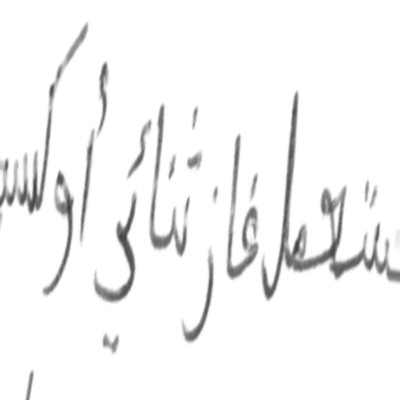 ستعمل غاز ثنائي أوكسـ